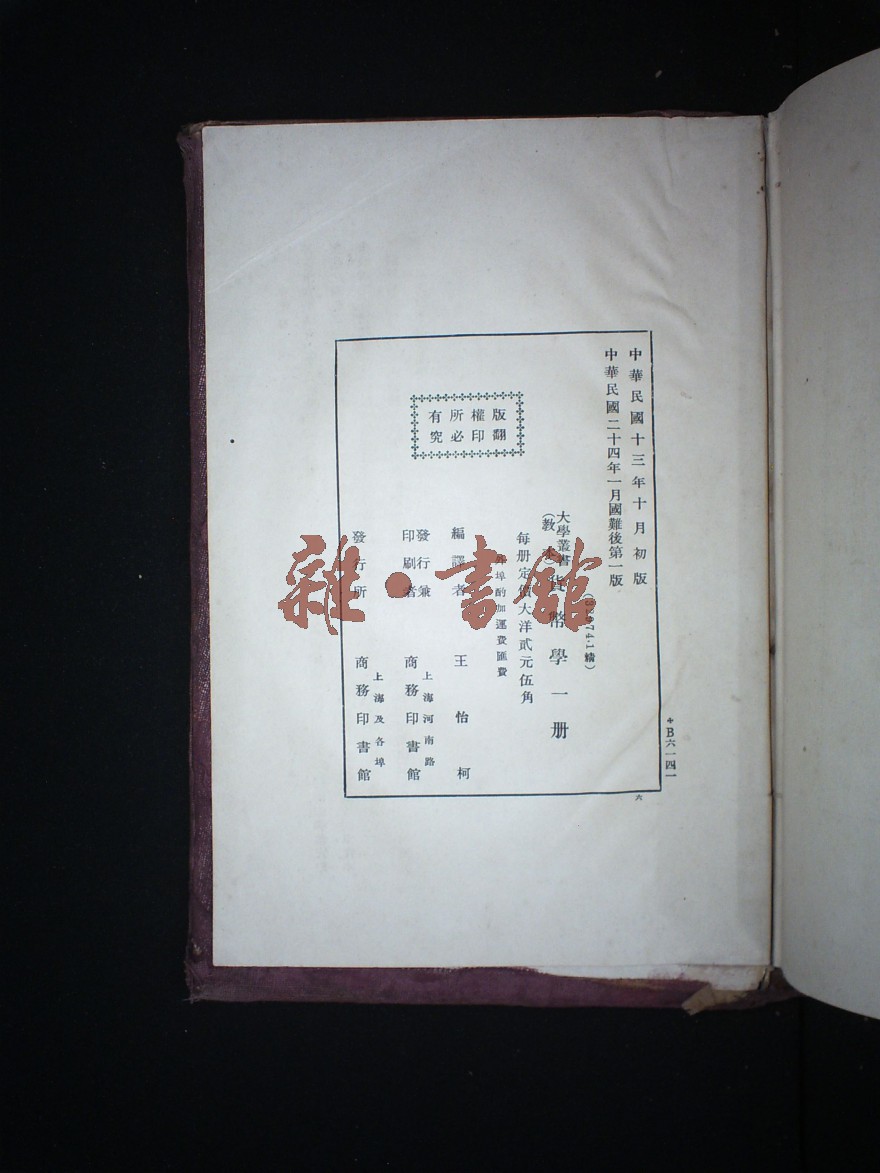 中華民國十三年十月初版
中華民國二十四年一月國難後第一版
大學叢書
(教本)
貨幣學一册
每册定價大洋貳元伍角
外埠酌加運費匯費
編譯者 王怡柯
發行兼
印刷者
上海河南路
商務印書館
發行所
上海及各埠
商務印書館
版權所有
翻印必究
B六一四一
六
雜·書館